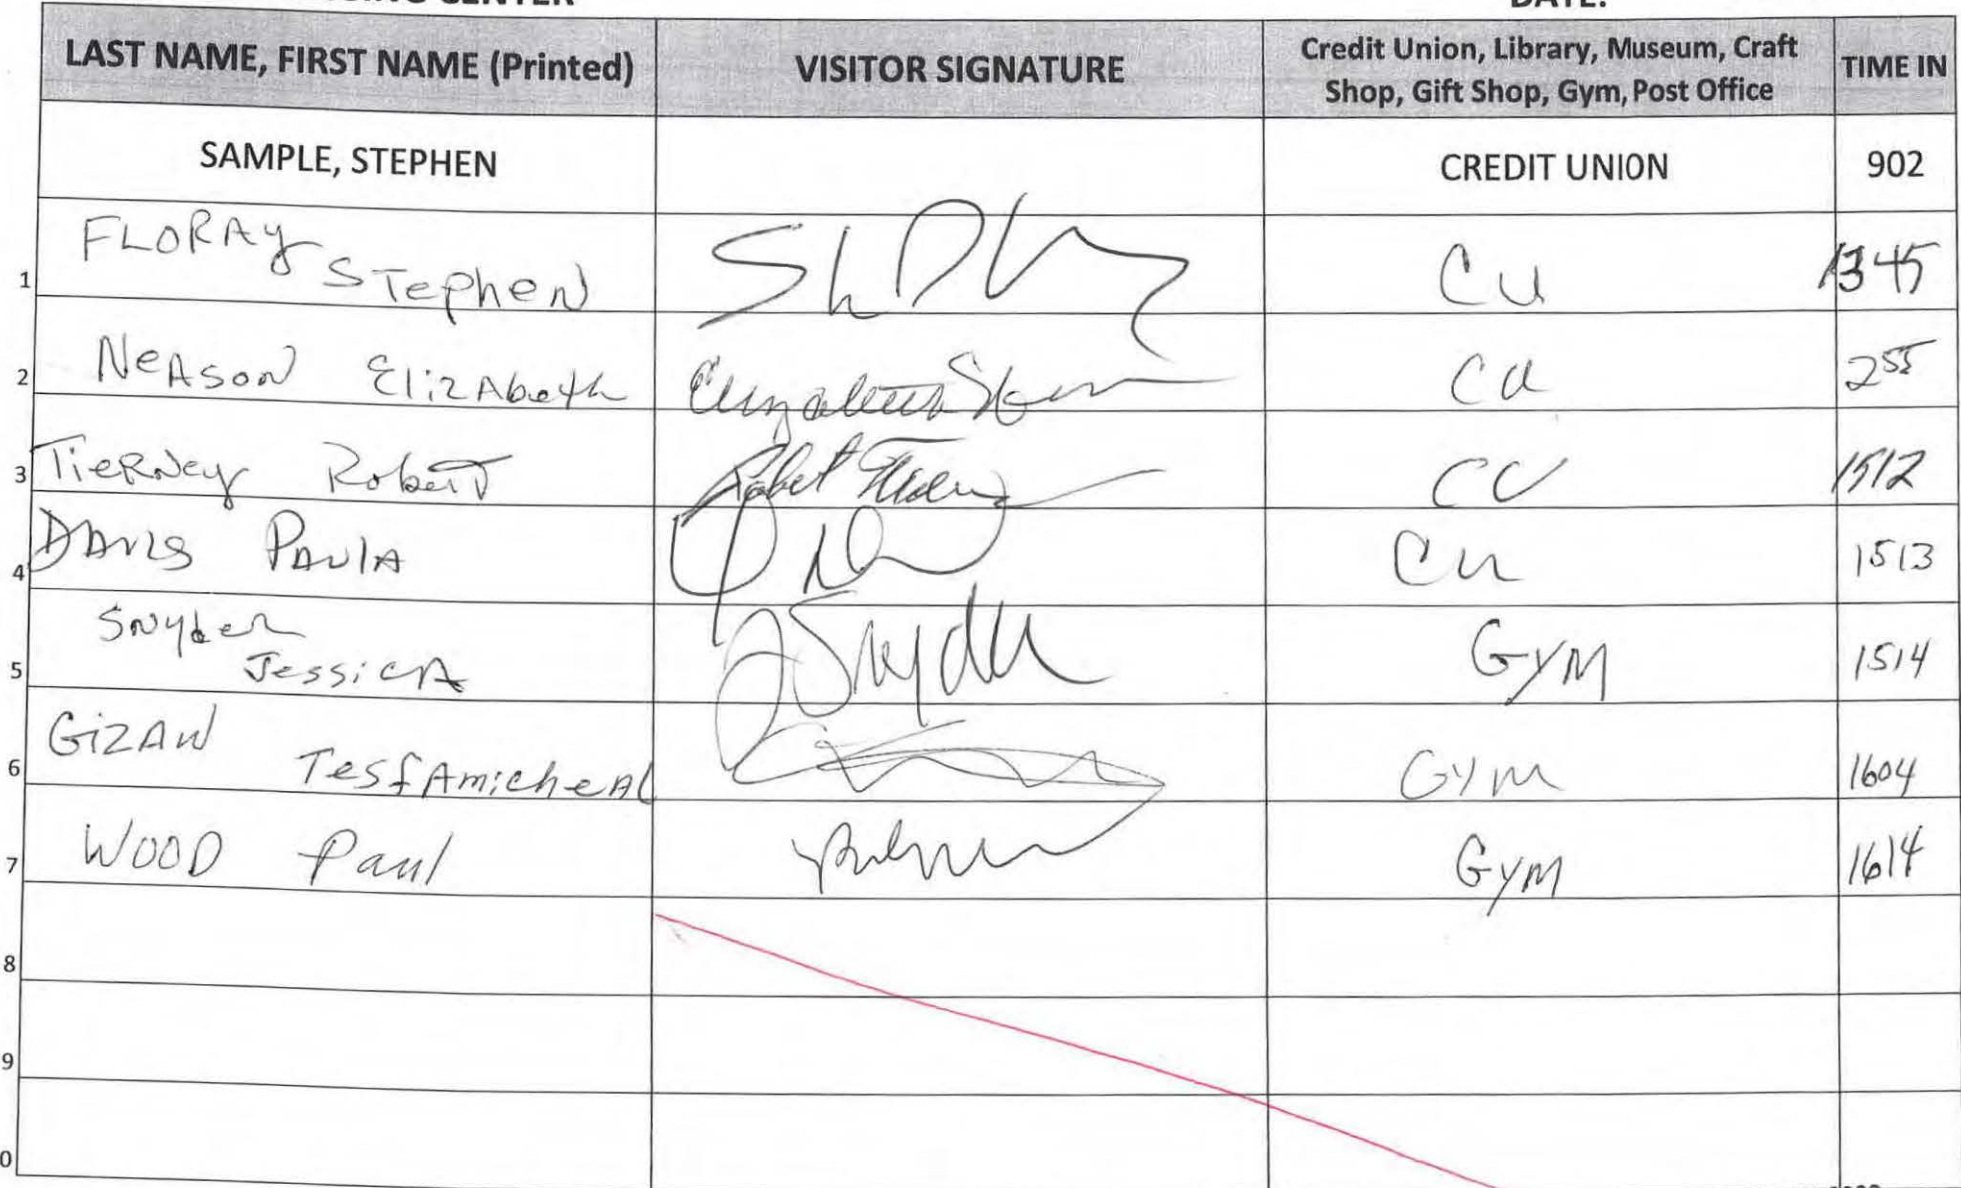 CENTER DATE:
LAST NAME, FIRST NAME (Printed) VISITOR SIGNATURE Credit Union, Library, Museum, Craft Shop, Gift Shop, Gym, Post Office TIME IN
SAMPLE, STEPHEN CREDIT UNION 902
1 FLORAY STephen CU 1345
2 NeAson ElizAbeth CU 255
3 TieRNey RobeRT Robert CU 1512
4 DAvis PAulA CU 1513
5 Snyder JessicA J Snyder Gym 1514
6 GizAw TesfAmicheAl Gym 1604
7 WOOD Paul Gym 1614
8
9
0